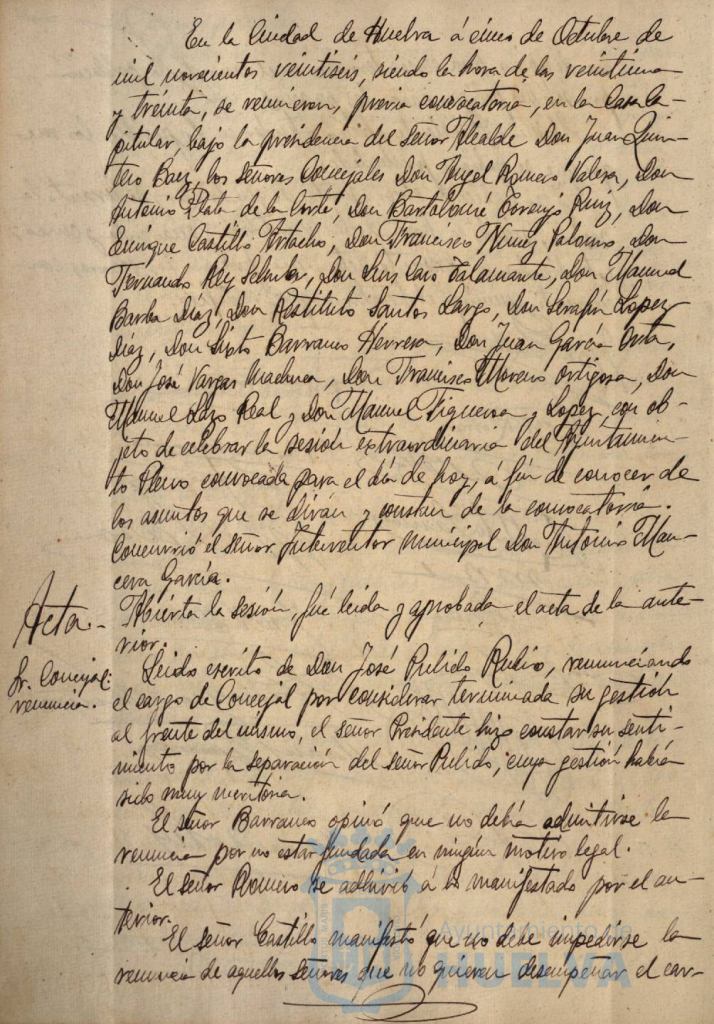 En la Ciudad de Huelva á cinco de Octubre de
mil novecientos veintiseis, siendo la hora de las veintiuna
y treinta, se reunieron, previa convocatoria, en la Casa Ca-
pitular, bajo la presidencia del señor Alcalde Don Juan Quin-
tero Baez, los señores Concejales Don Angel Romero Valera, Don
Antonio Plata de la Corte, Don Bartolomé Toronjo Ruiz, Don
Enrique Castillo Artacho, Don Francisco Nuñez Palomo, Don
Fernando Rey Don Luis Caro Talamante, Don Manuel
Barba Diaz, Don Restituto Santos Largo, Don Serafin Lopez
Diaz, Don Sixto Barranco Herrera, Don Juan Garcia Orta,
Don José Vargas Machuca, Don Francisco Moreno Ortigosa, Don
Manuel Lazo Real y Don Manuel Figueroa y Lopez, con ob-
jeto de celebrar la sesión extraordinaria del Ayuntamien-
to Pleno convocada para el día de hoy, á fin de conocer de
los asuntos que se dirán y constan de la convocatoria.
Concurrió el señor Interventor municipal Don Antonio Man-
cera García.
Acta.-
Abierta la sesión, fué leida y aprobada el acta de la ante-
rior.
Sr. Concejal:
renuncia.
Leido escrito de Don José Pulido Rubio, renunciando
el cargo de Concejal por considerar terminada su gestión
al frente del mismo, el señor Presidente hizo constar su senti-
miento por la separación del señor Pulido, cuya gestión había
sido muy meritoria.
El señor Barranco opinó que no debía admitirse la
renuncia por no estar fundada en ningún motivo legal.
El señor Romero se adhirió á lo manifestado por el an-
terior.
El señor Castillo manifestó que no debe impedirse la
renuncia de aquellos señores que no quieran desempeñar el car-
Ayuntamiento de
HUELVA